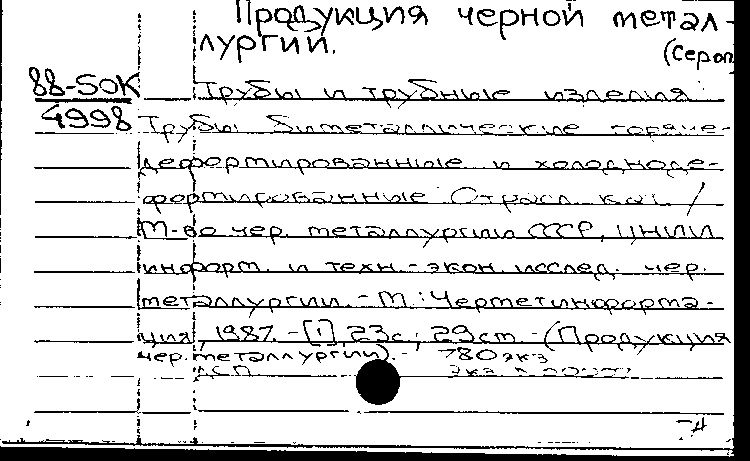 Продукция черной метал-
лургии.
(Сероп
88-50К
4998
Трубы и трубные изделия
Трубы биметаллические горяче-
деформированные и холодноде-
формированные: Отрасл. кат. /
М-во чер. металлургии СССР, ЦНИИ
информ. и техн.-экон. исслед. чер.
металлургии. - М.: Черметинформа-
ция, 1987. - [1], 23с.; 29см. - (Продукция
чер. металлургии). - 780 экз
ДСП. Экз. N